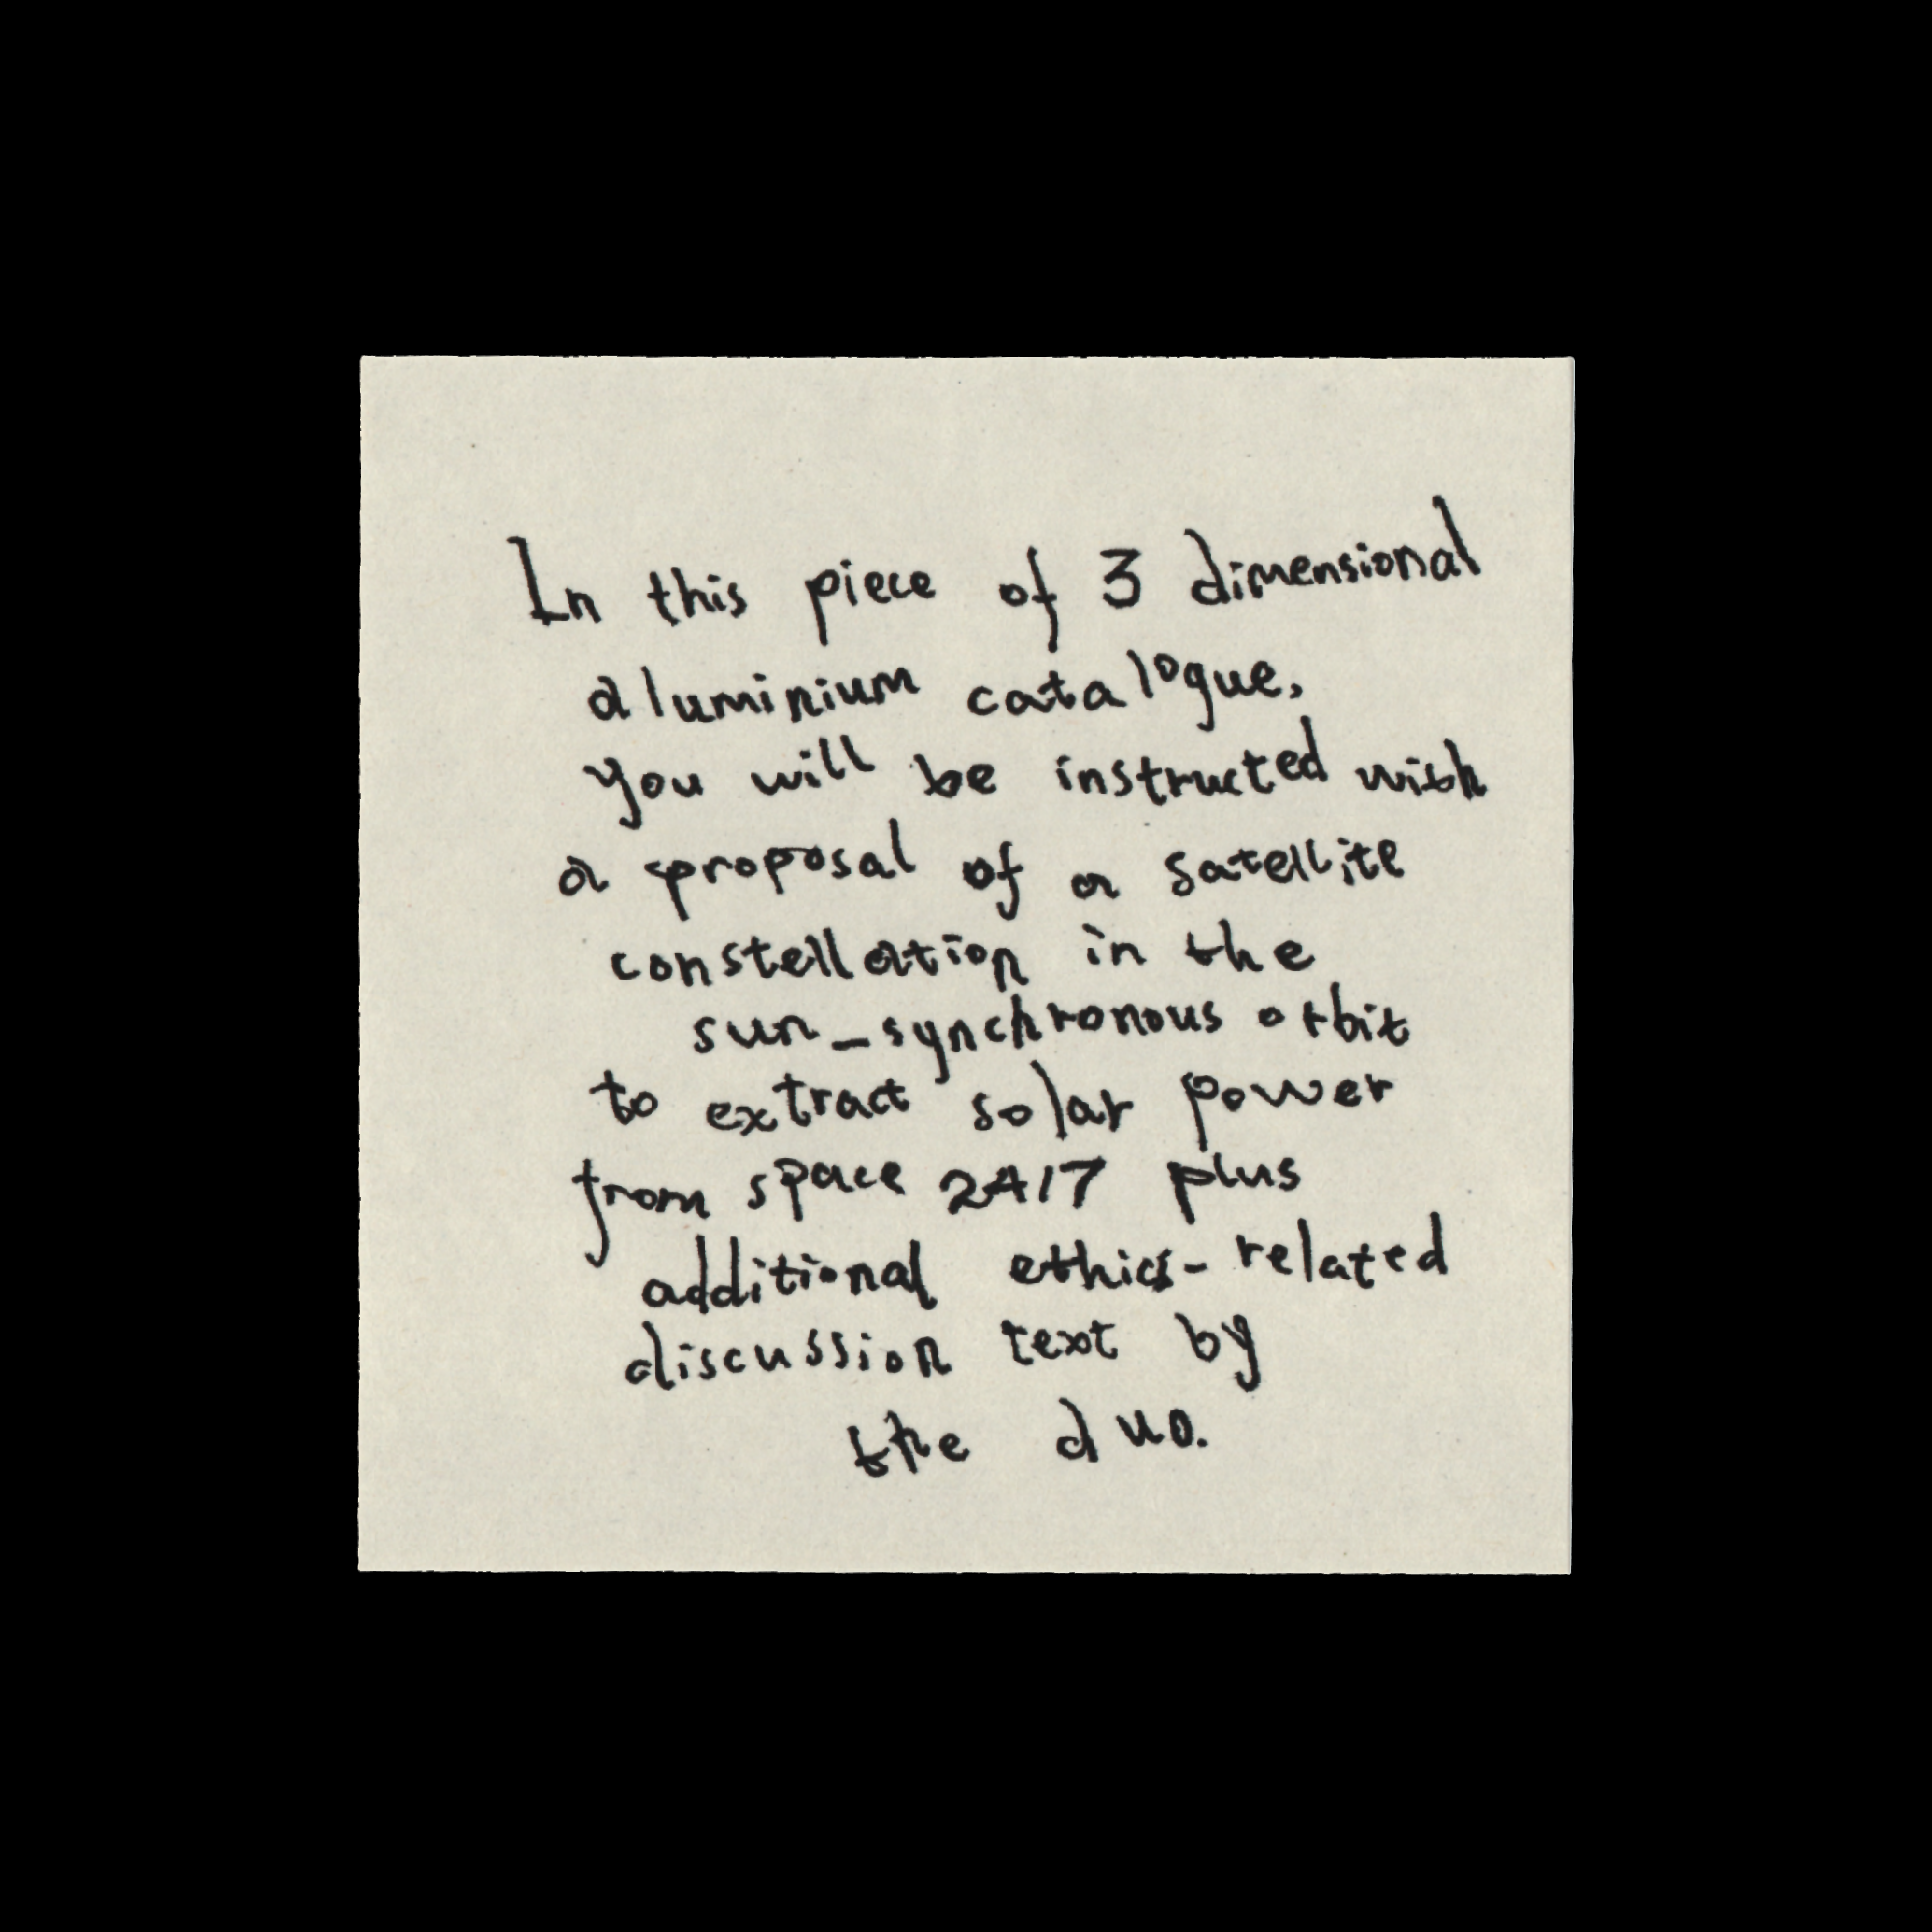 In this piece of 3 dimensional
aluminium catalogue,
you will be instructed with
a proposal of a satellite
constellation in the
sun-synchronous orbit
to extract solar power
from space 24/7 plus
additional ethics-related
discussion text by
the duo.